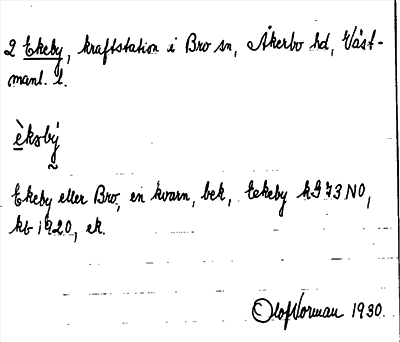 2 Ekeby, kraftstation i Bro sn, Åkerbo hd, Väst-
manl. l.
èksbý
Ekeby eller Bro, en kvarn, bek, Eekeby kG 73 NO,
kb 1920, ek.
Olof Norman 1930.